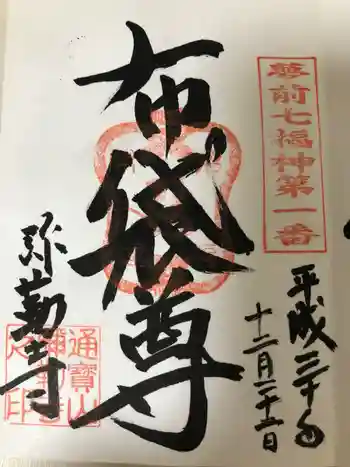 夢前七福神第一番
平成三十年
十二月二十二日
布袋尊
弥勒寺
通寶山
弥勒寺
之印